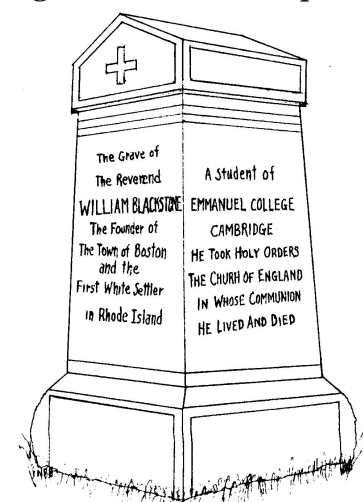 The Grave of
The Reverend
WILLIAM BLACKSTONE
The Founder of
The Town of Boston
and the
First White Settler
in Rhode Island
A Student of
EMMANUEL COLLEGE
CAMBRIDGE
HE TOOK HOLY ORDERS
THE CHURH OF ENGLAND
IN WHOSE COMMUNION
HE LIVED AND DIED